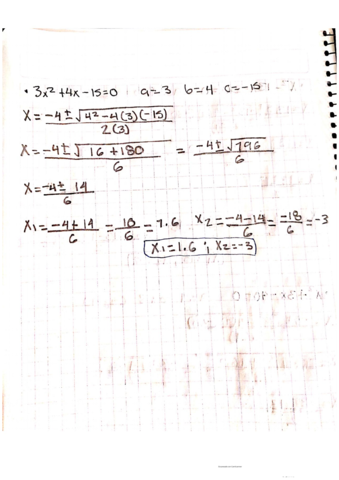 • 3x² + 4x - 15 = 0 a = 3 b = 4 c = -15
x = -4 ± √4² - 4(3)(-15) / 2(3)
x = -4 ± √16 + 180 / 6 = -4 ± √196 / 6
x = -4 ± 14 / 6
x₁ = -4 + 14 / 6 = 10 / 6 = 1.6 x₂ = -4 - 14 / 6 = -18 / 6 = -3
x₁ = 1.6 ; x₂ = -3